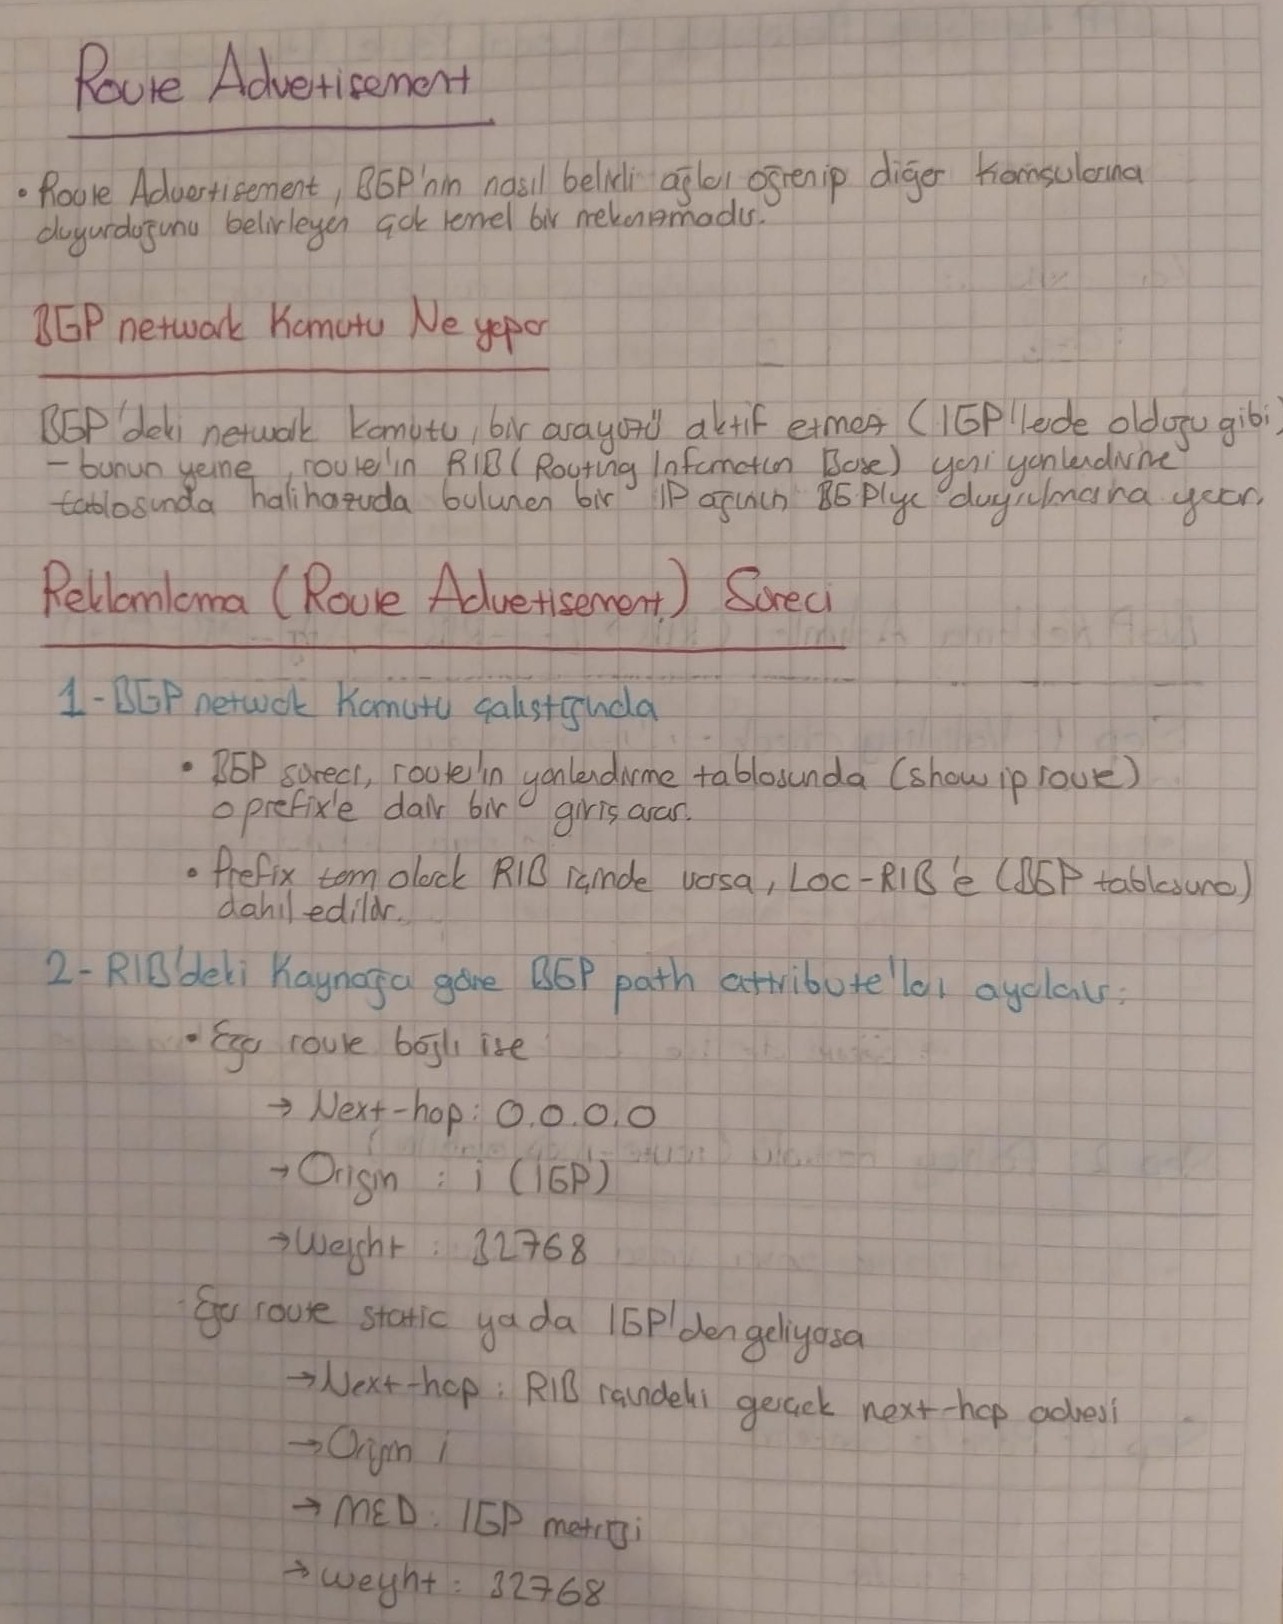 Route Advertisement
• Route Advertisement, BGP'nin nasıl belirli ağları öğrenip diğer komşularına
duyurduğunu belirleyen çok temel bir mekanizmadır.
BGP network Komutu Ne yapar
BGP'deki network komutu, bir arayüzü aktif etmez (IGP'lerde olduğu gibi)
- bunun yerine, router'ın RIB (Routing Information Base) yani yönlendirme
tablosunda halihazırda bulunan bir IP ağının BGP'ye duyurulmasına yarar.
Reklamlama (Route Advertisement) Süreci
1- BGP network Komutu çalıştığında
• BGP süreci, router'ın yönlendirme tablosunda (show ip route)
o prefix'e dair bir giriş arar.
• Prefix tam olarak RIB içinde varsa, Loc-RIB'e (BGP tablosuna)
dahil edilir.
2- RIB'deki Kaynağa göre BGP path attribute'ları ayarlanır:
• Eğer route bağlı ise
→ Next-hop: 0.0.0.0
→ Origin : i (IGP)
→ Weight : 32768
Eğer route static ya da IGP'den geliyorsa
→ Next-hop : RIB içindeki gerçek next-hop adresi
→ Origin i
→ MED : IGP metriği
→ Weight : 32768